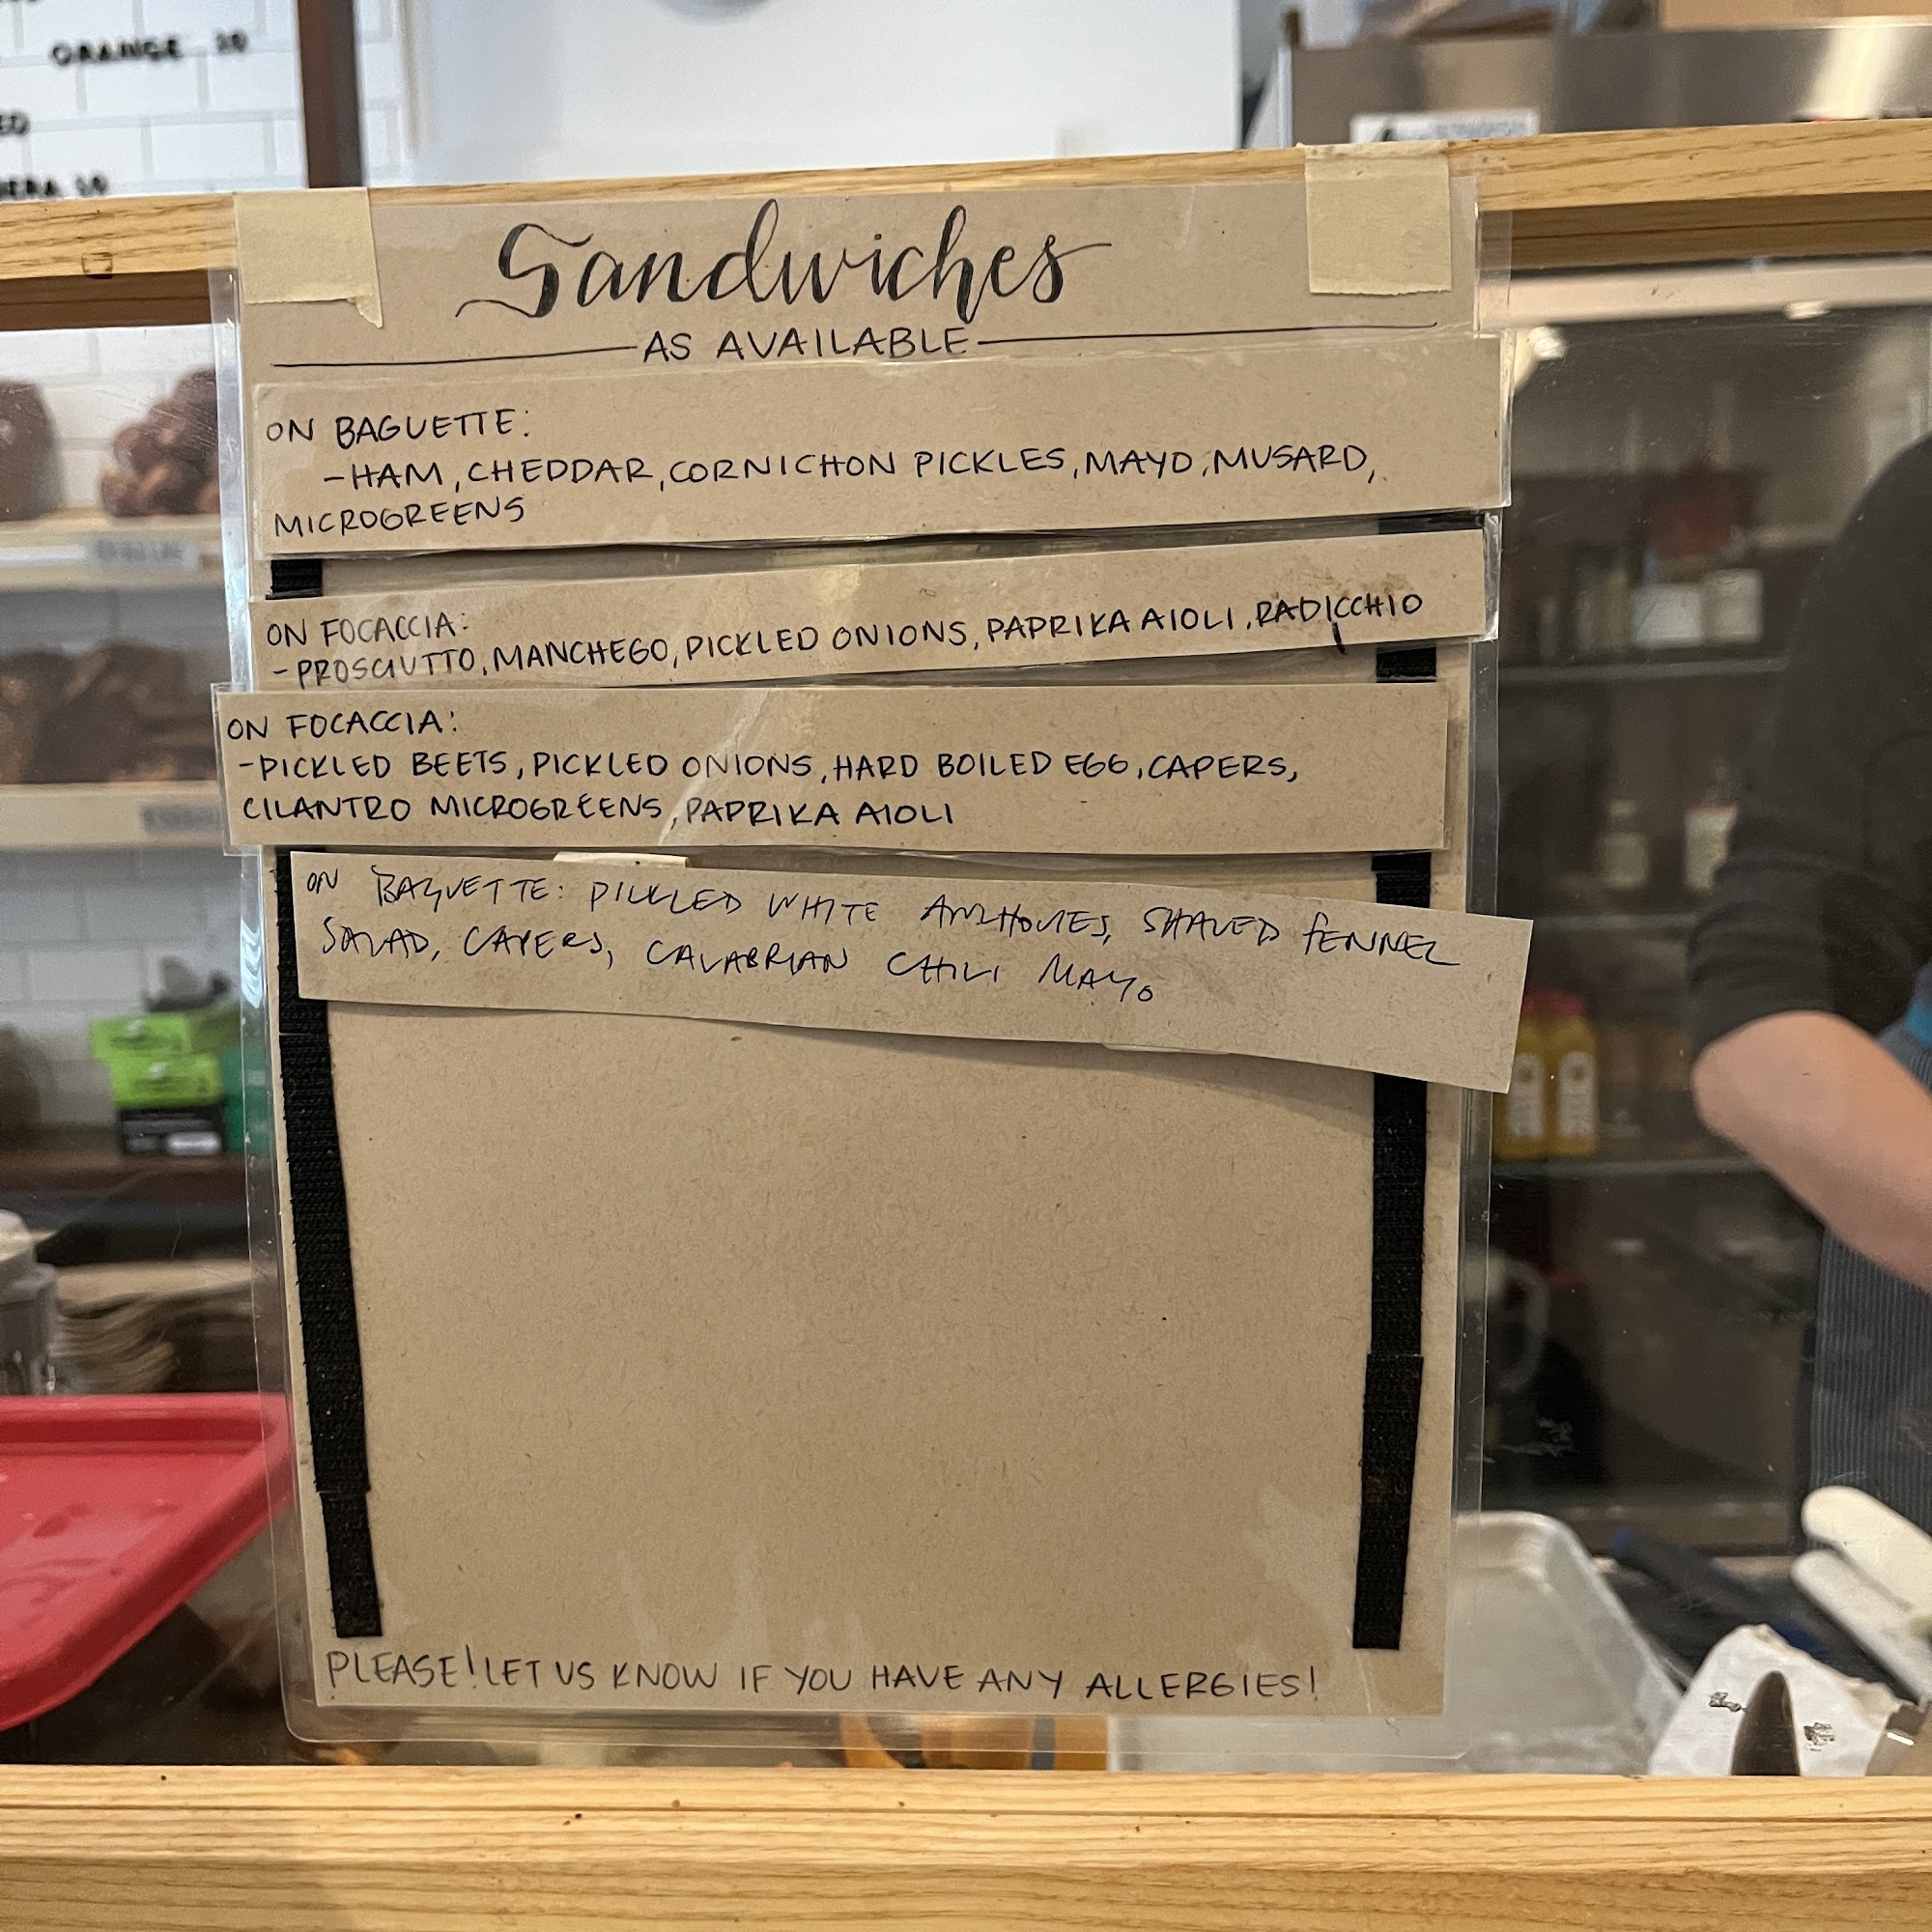 ORANGE 10
Sandwiches
AS AVAILABLE
ON BAGUETTE:
-HAM, CHEDDAR, CORNICHON PICKLES, MAYO, MUSARD,
MICROGREENS
ON FOCACCIA:
- PROSCIUTTO, MANCHEGO, PICKLED ONIONS, PAPRIKA AIOLI, RADICCHIO
ON FOCACCIA:
-PICKLED BEETS, PICKLED ONIONS, HARD BOILED EGG, CAPERS,
CILANTRO MICROGREENS, PAPRIKA AIOLI
ON BAGUETTE: PICKLED WHITE ANCHOVIES, SHAVED FENNEL
SALAD, CAPERS, CALABRIAN CHILI MAYO
PLEASE! LET US KNOW IF YOU HAVE ANY ALLERGIES!